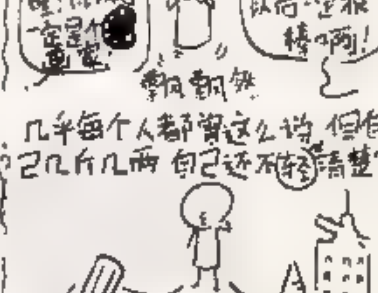 一定是个
画家
以后一定很
棒啊!
飘飘然
几乎每个人都曾这么说 但自
己几斤几两 自己还不轻清楚